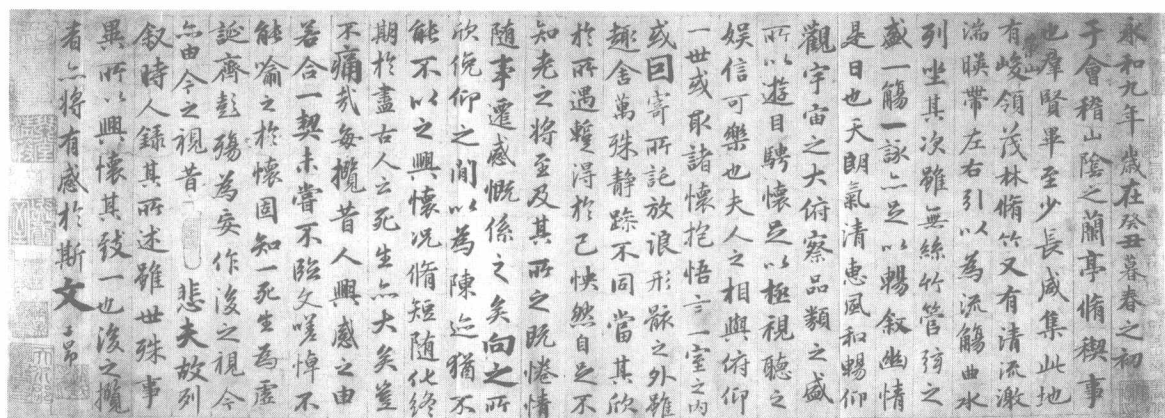 永和九年歲在癸丑暮春之初
于會稽山陰之蘭亭脩稧事
也羣賢畢至少長咸集此地
有崇山峻領茂林脩竹又有清流激
湍暎帶左右引以為流觴曲水
列坐其次雖無絲竹管弦之
盛一觴一詠亦足以暢叙幽情
是日也天朗氣清惠風和暢仰
觀宇宙之大俯察品類之盛
所以遊目騁懷足以極視聽之
娛信可樂也夫人之相與俯仰
一世或取諸懷抱悟言一室之内
或因寄所託放浪形骸之外雖
趣舍萬殊静躁不同當其欣
於所遇蹔得於己怏然自足不
知老之将至及其所之既惓情
隨事遷感慨係之矣向之所
欣俛仰之閒以為陳迹猶不
能不以之興懷況脩短隨化終
期於盡古人云死生亦大矣豈
不痛哉每攬昔人興感之由
若合一契未嘗不臨文嗟悼不
能喻之於懷固知一死生為虛
誕齊彭殤為妄作後之視今
亦由今之視昔 悲夫故列
叙時人錄其所述雖世殊事
異所以興懷其致一也後之攬
者亦将有感於斯文 子昂